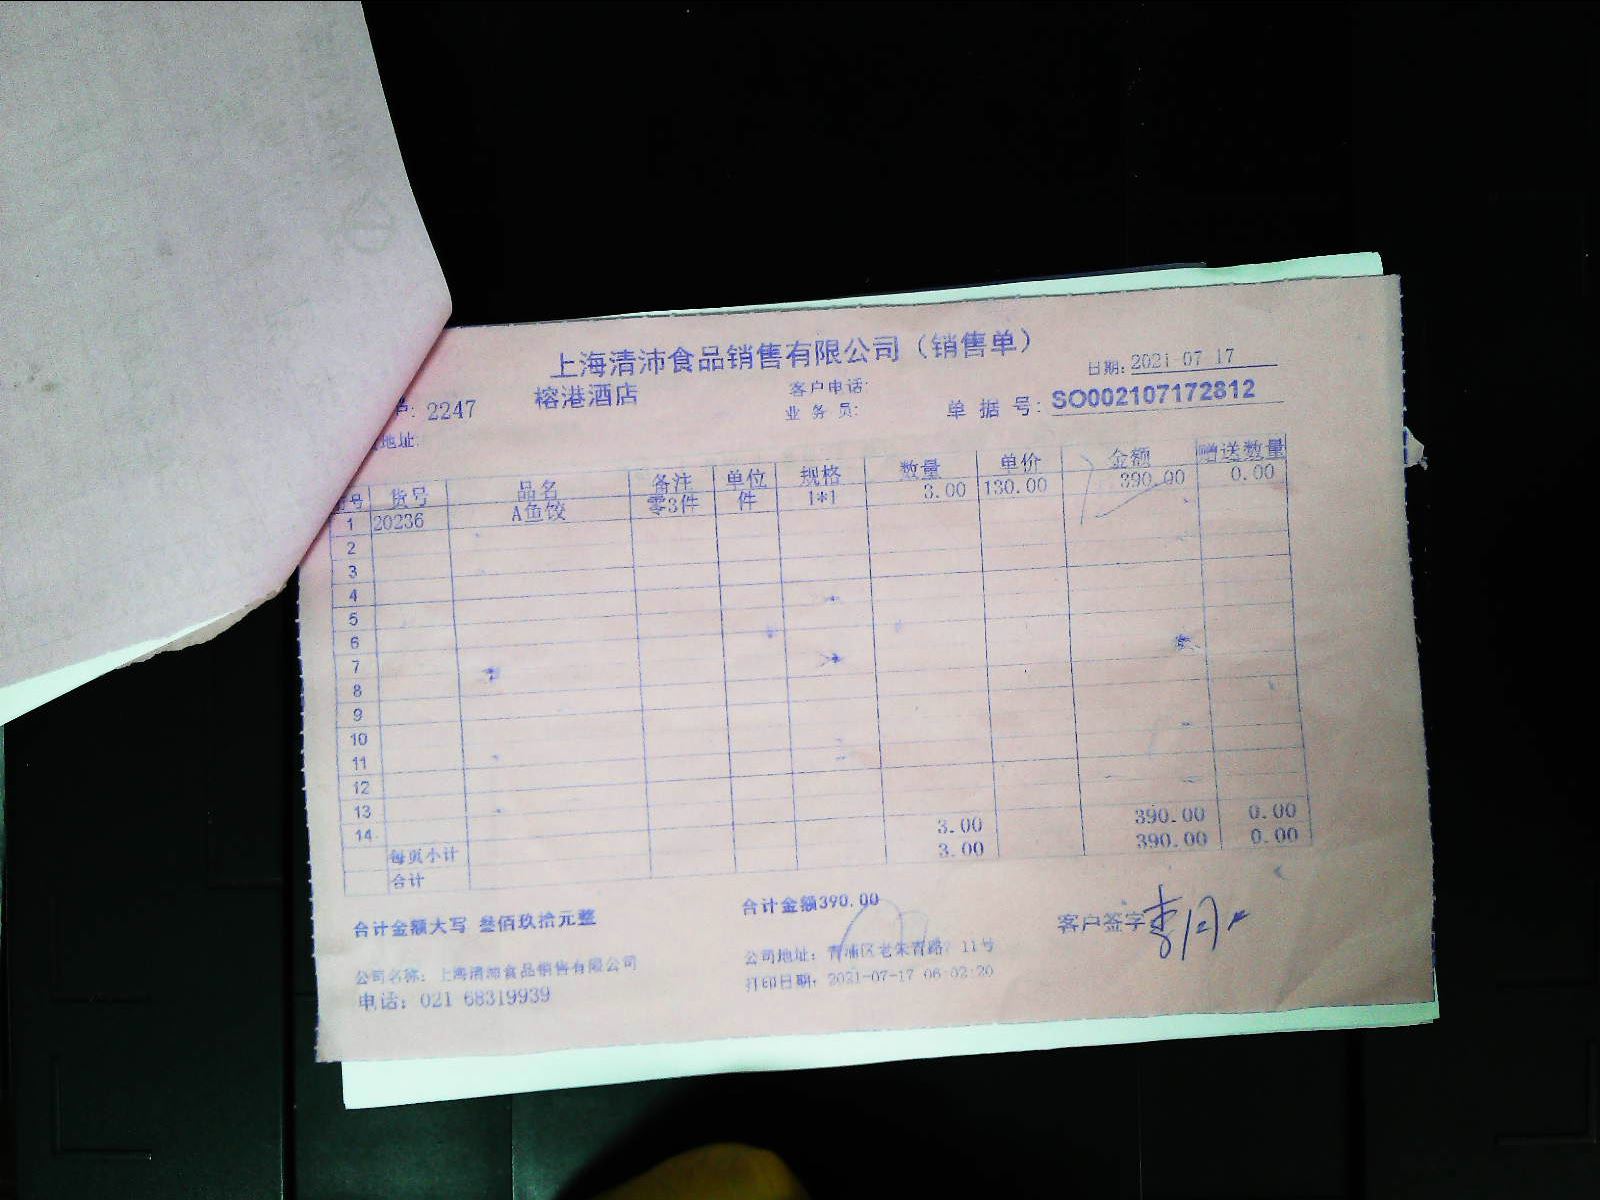 上海清沛食品销售有限公司（销售单）
日期: 2021-07-17
户: 2247 榕港酒店 客户电话:
业务员: 单据号: SO002107172812
地址:
号 货号 品名 备注 单位 规格 数量 单价 金额 赠送数量
1 20236 A鱼饺 零3件 件 1*1 3.00 130.00 390.00 0.00
2
3
4
5
6
7
8
9
10
11
12
13
14 3.00 390.00 0.00
每页小计 3.00 390.00 0.00
合计
合计金额大写 叁佰玖拾元整 合计金额390.00 客户签字
公司名称: 上海清沛食品销售有限公司 公司地址: 青浦区老朱青路 11号
电话: 021 68319939 打印日期: 2021-07-17 06:02:20